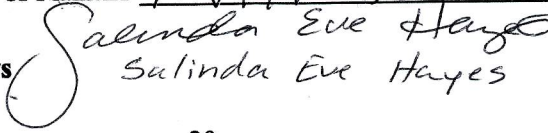 Salinda Eve Hayes
s Salinda Eve Hayes